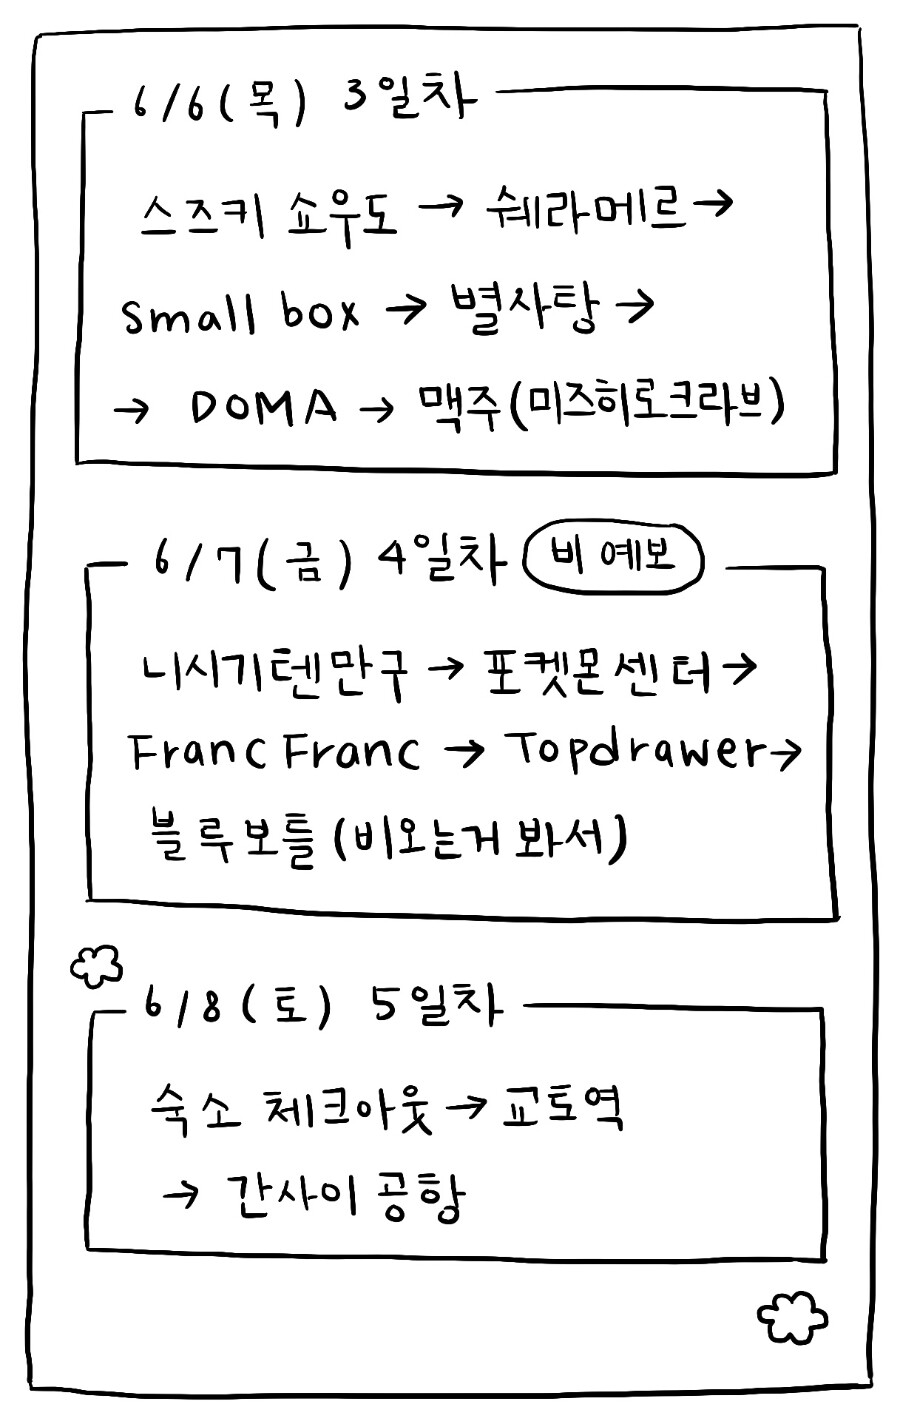 6/6(목) 3일차
스즈키 쇼우도 → 쉐라메르 →
small box → 별사탕 →
→ DOMA → 맥주(미즈히로크라브)
6/7(금) 4일차 비 예보
니시기텐만구 → 포켓몬센터 →
Franc Franc → Topdrawer →
블루보틀 (비오는거 봐서)
6/8(토) 5일차
숙소 체크아웃 → 교토역
→ 간사이 공항